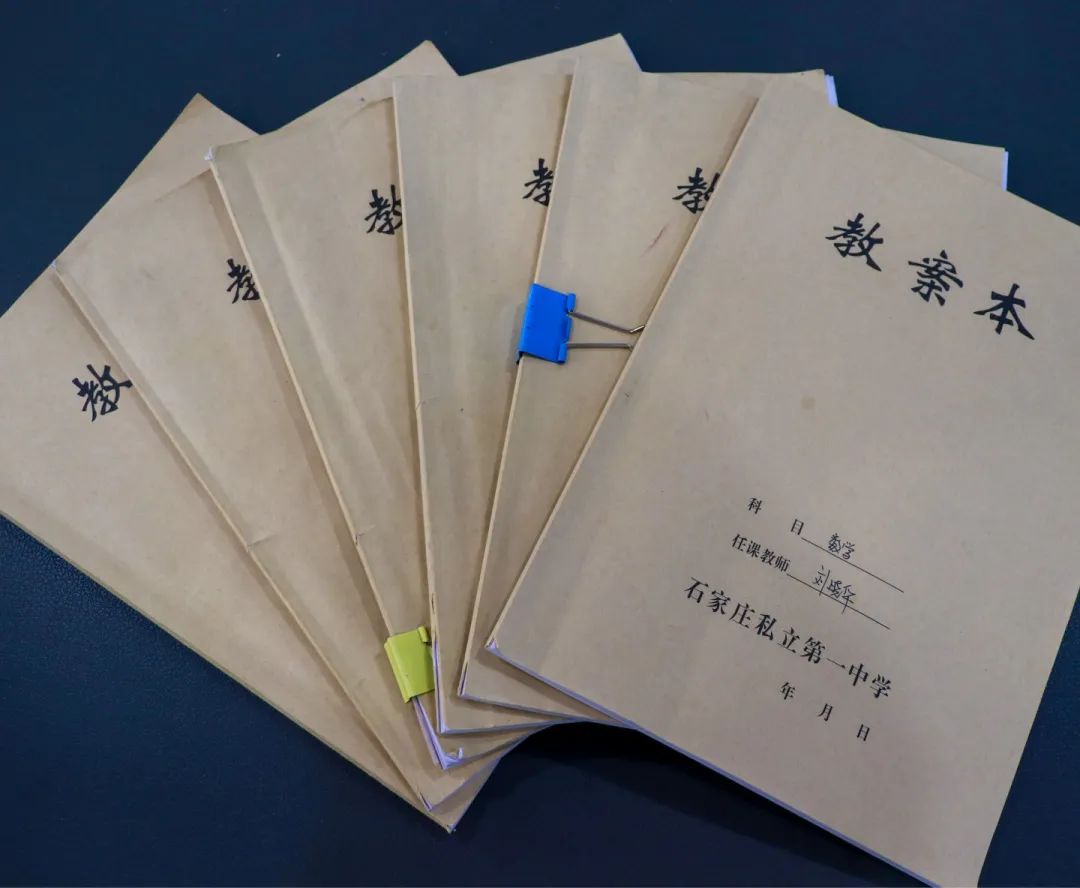 教
教
教
教
教
教案本
科 目 数学
任课教师
石家庄私立第一中学
年 月 日